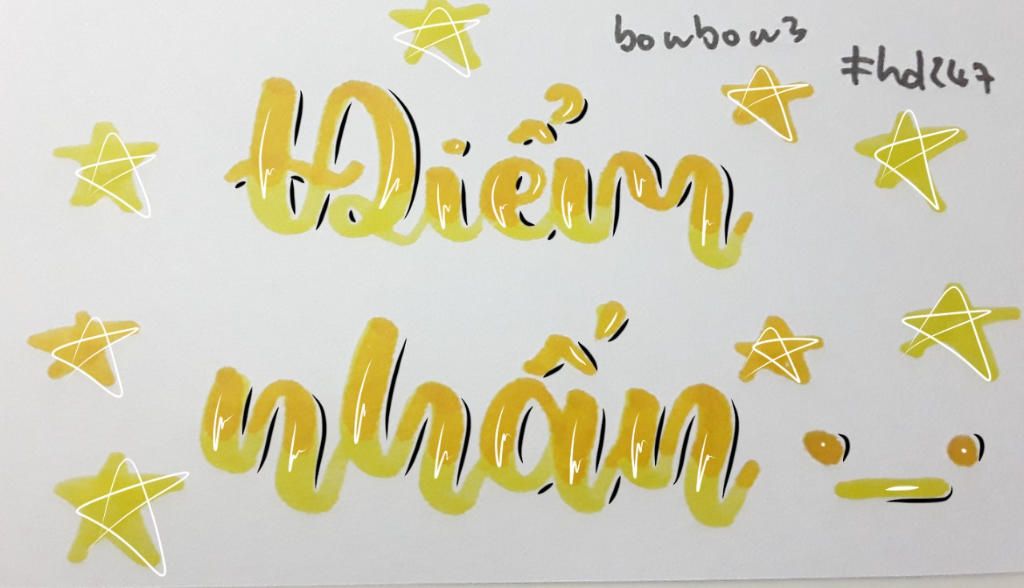 bowbow3
#hd247
Điểm
nhấn